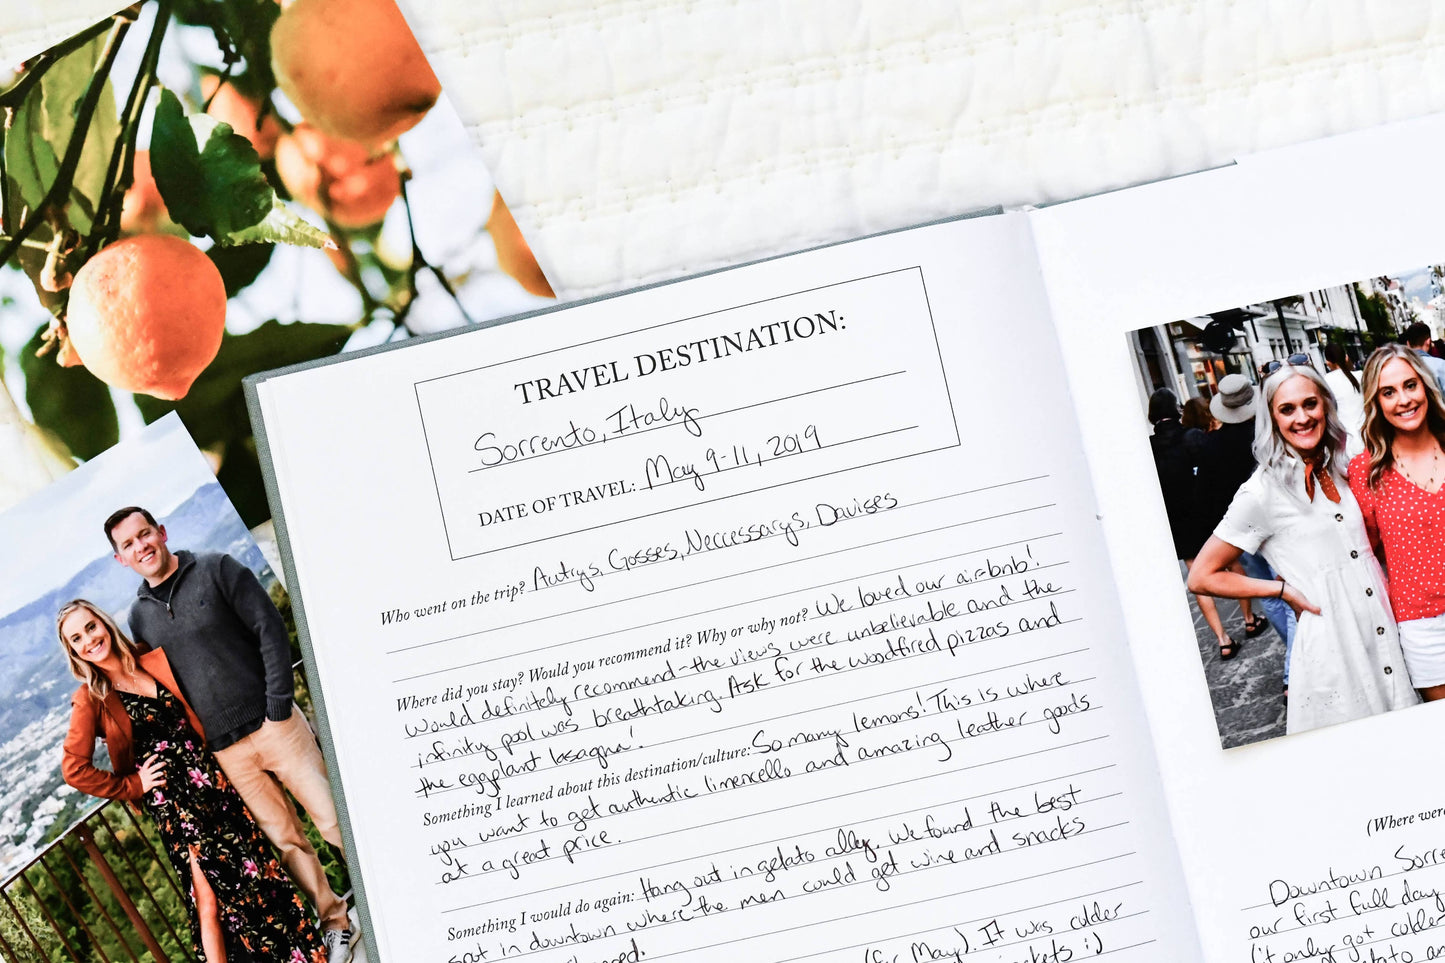 TRAVEL DESTINATION:
Sorrento, Italy
DATE OF TRAVEL: May 9-11, 2019
Who went on the trip? Autrys, Gosses, Neccessarys, Davises
Where did you stay? Would you recommend it? Why or why not? We loved our airbnb!
Would definitely recommend - the views were unbelievable and the
infinity pool was breathtaking. Ask for the woodfired pizzas and
the eggplant lasagna!
Something I learned about this destination/culture: So many lemons! This is where
you want to get authentic limencello and amazing leather goods
at a great price.
Something I would do again: Hang out in gelato ally. We found the best
spot in downtown where the men could get wine and snacks
(for May). It was colder
:)
(Where were
Downtown Sorre
our first full day
(it only got colde